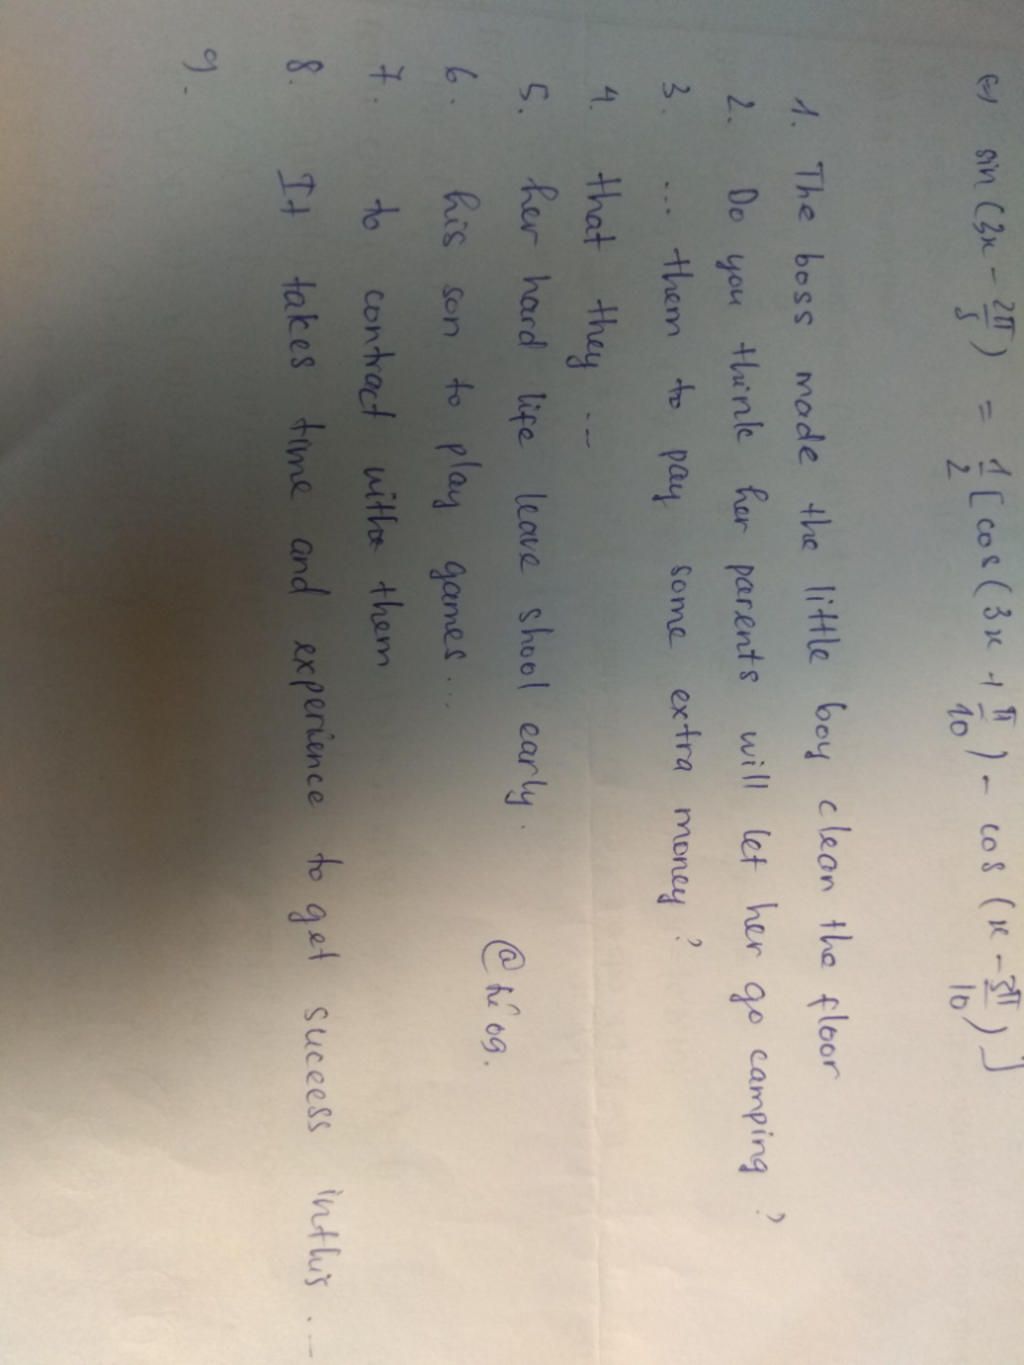 ⇔ sin(3x - 2π/5) = 1/2 [cos(3x + π/10) - cos(x - 3π/10)]
1. The boss made the little boy clean the floor
2. Do you think her parents will let her go camping ?
3. ... them to pay some extra money ?
4. that they ...
5. her hard life leave shool early.
6. his son to play games...
7. to contract with them
8. It takes time and experience to get suceess inthis ...
9.